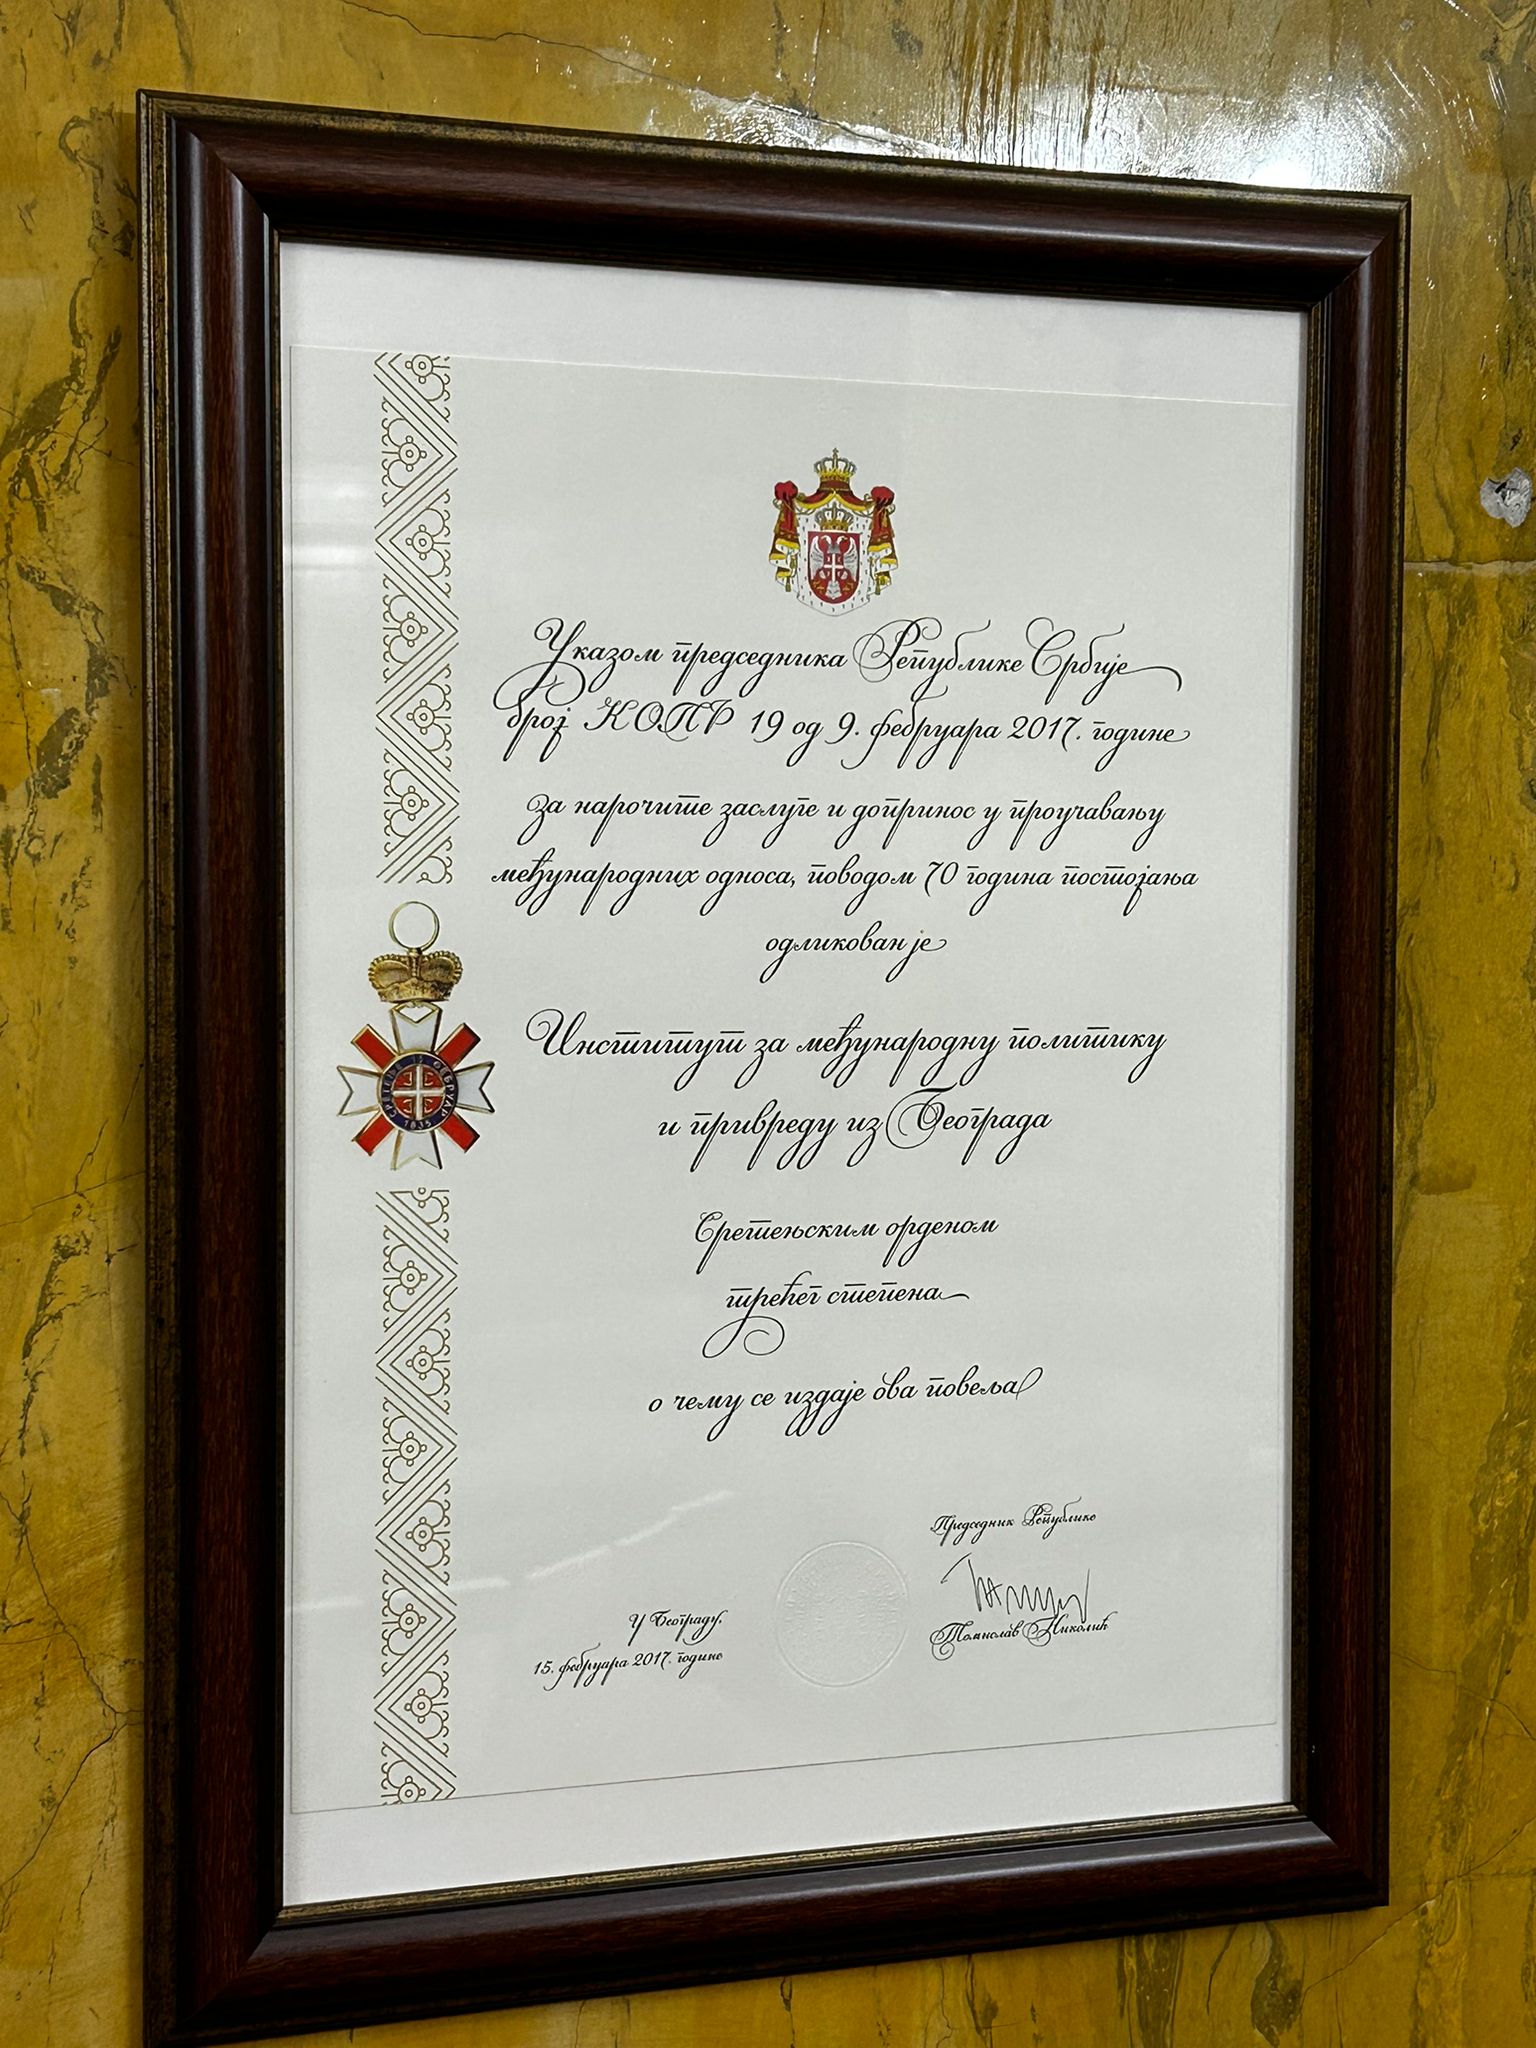 Указом председника Републике Србије
број КОПР 19 од 9. фебруара 2017. године
за нарочите заслуге и допринос у проучавању
међународних односа, поводом 70 година постојања
одликован је
Институт за међународну политику
и привреду из Београда
Сретењским орденом
трећег степена
о чему се издаје ова повеља
Председник Републике
Томислав Николић
У Београду,
15. фебруара 2017. године
СРЕТЕЊЕ 15. ФЕБРУАР 1835